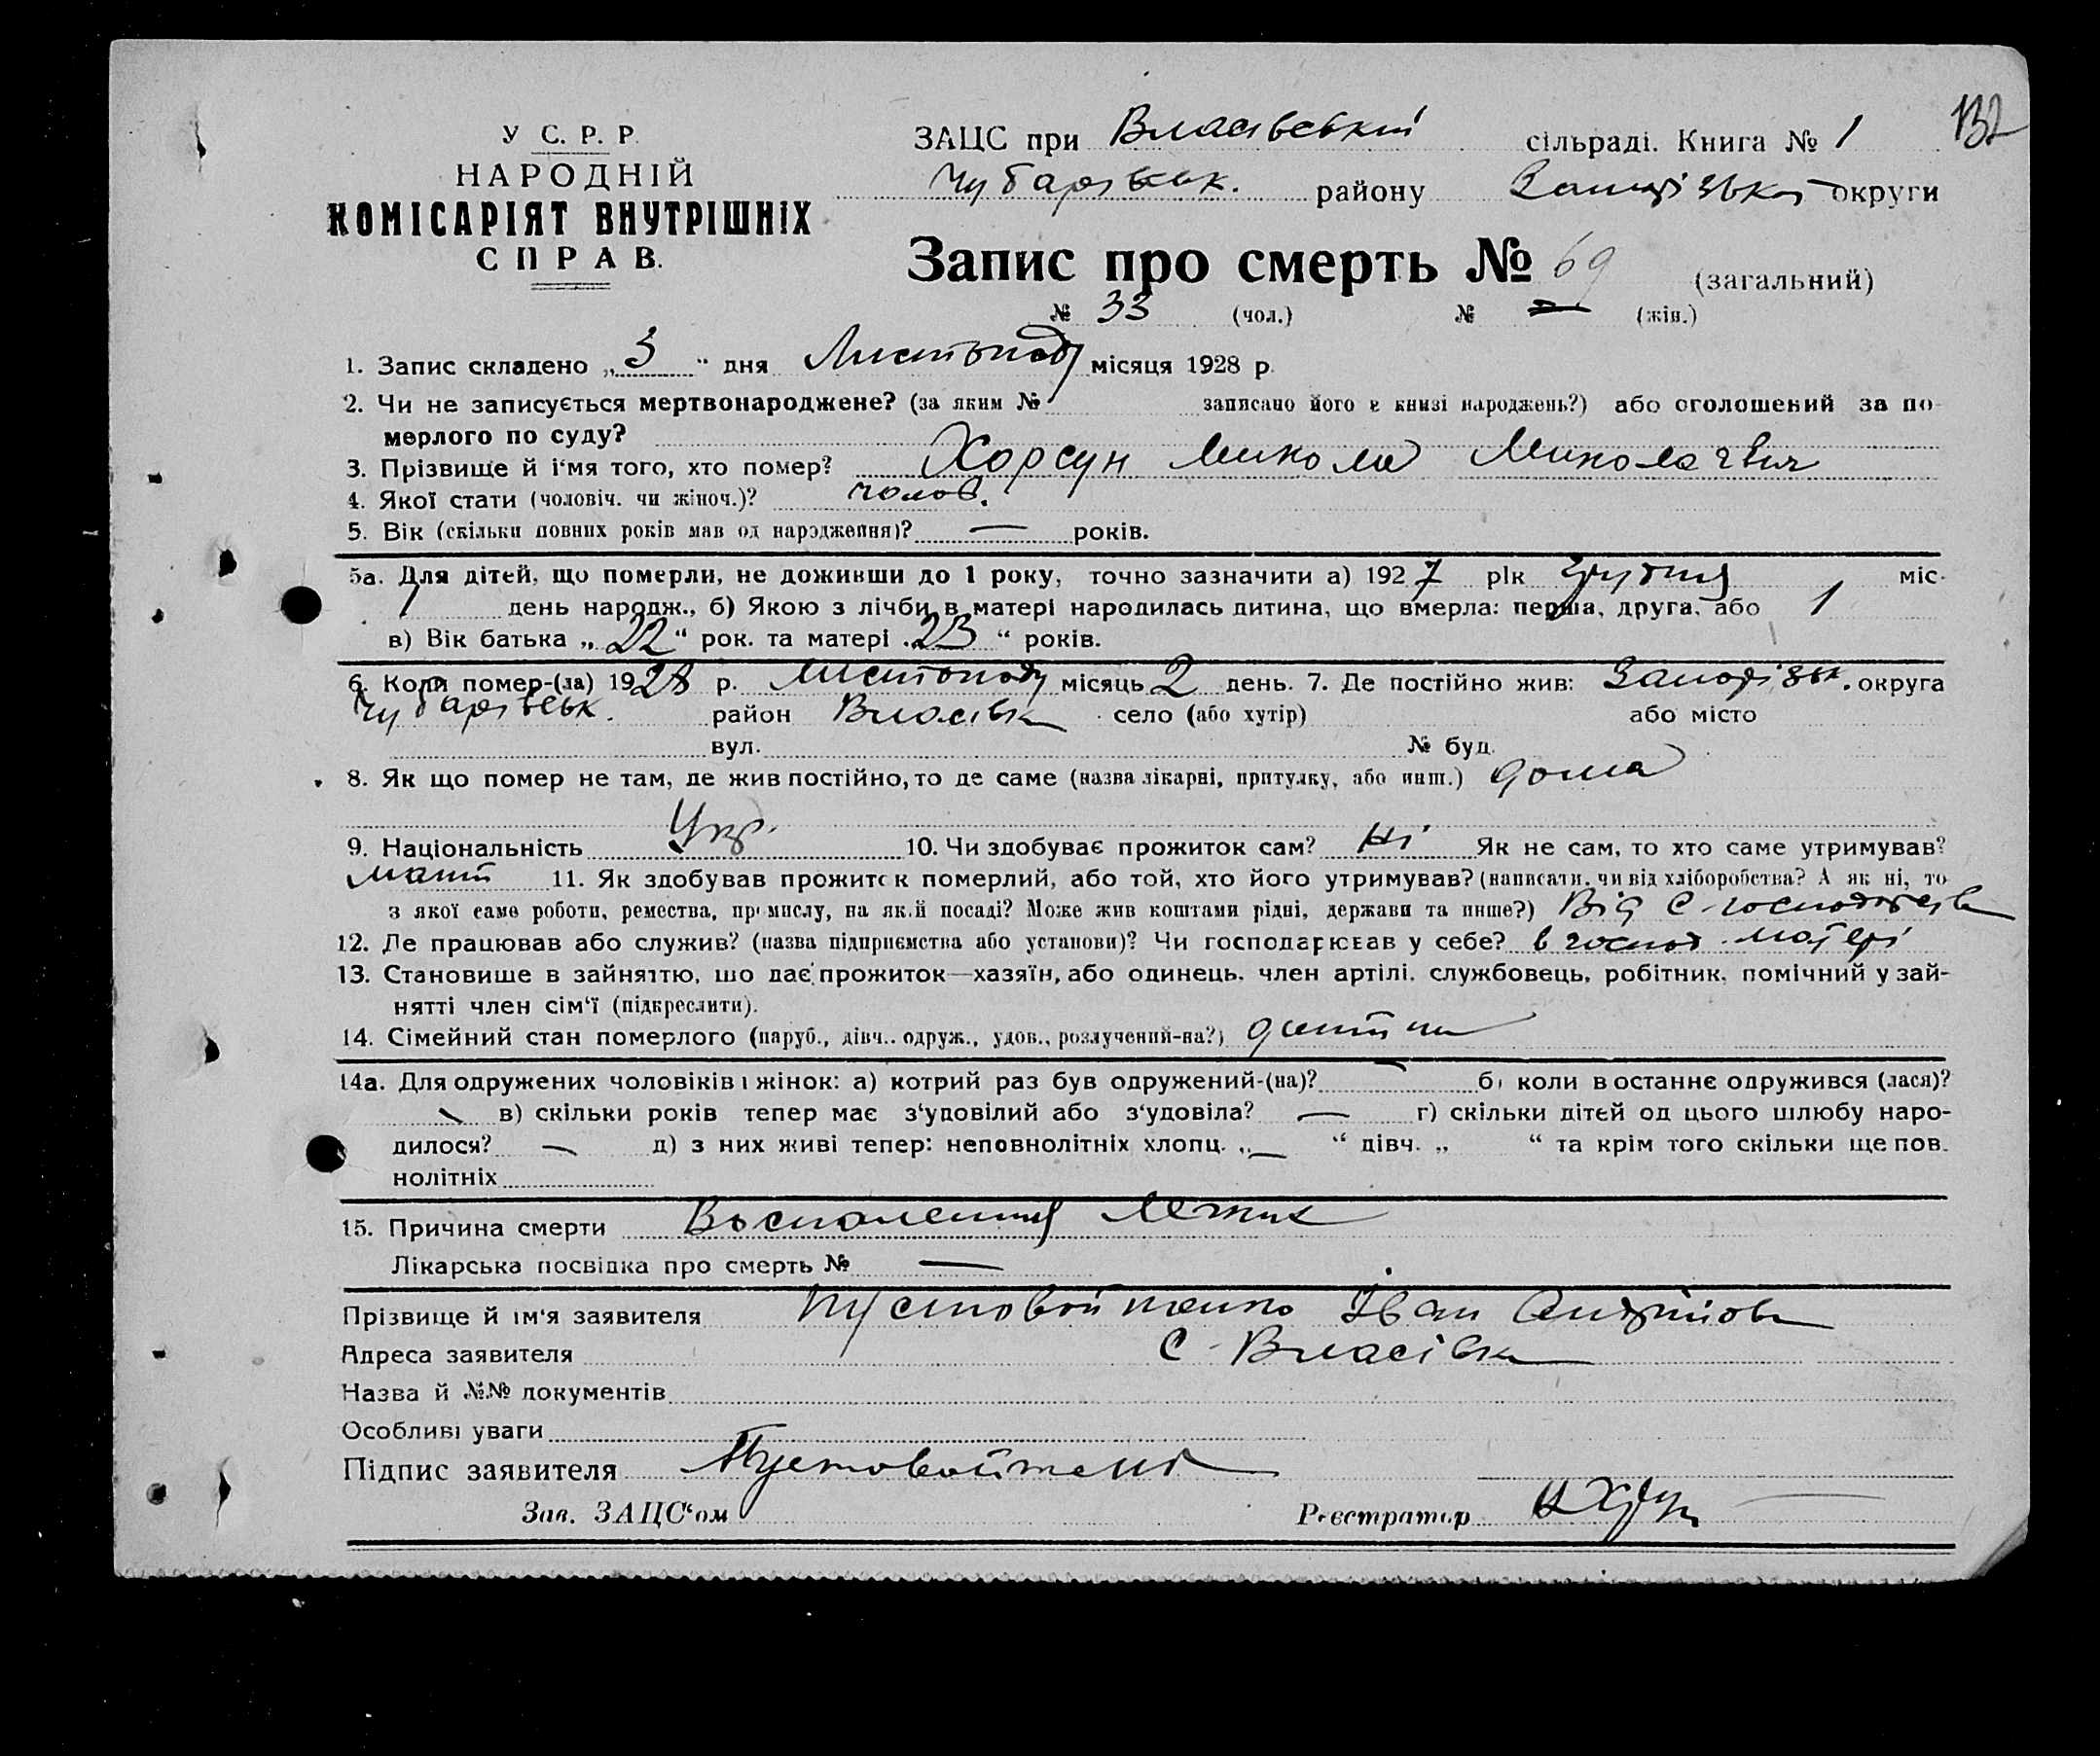 132
У С. Р. Р.
НАРОДНІЙ
КОМІСАРІЯТ ВНУТРІШНІХ
СПРАВ.
ЗАЦС при Власівській сільраді. Книга № 1
Чубарівськ. району Запорізької округи
Запис про смерть № 69 (загальний)
№ 33 (чол.) № — (жін.)
1. Запис складено „3“ дня Листопаду місяця 1928 р.
2. Чи не записується мертвонароджене? (за яким № записано його в книзі народжень?) або оголошений за по-
мерлого по суду?
3. Прізвище й і'мя того, хто помер? Хорсун Микола Миколаєвич
4. Якої стати (чоловіч. чи жіноч.)? чолов.
5. Вік (скільки повних років мав од народження)? — років.
5а. Для дітей, що померли, не доживши до 1 року, точно зазначити а) 1927 рік Грудня міс.
1 день народж., б) Якою з лічби в матері народилась дитина, що вмерла: перша, друга, або 1
в) Вік батька „22“ рок. та матері „23“ років.
6. Коли помер-(ла) 1928 р. Листопаду місяць 2 день. 7. Де постійно жив: Запоріз̌ьк. округа
Чубарівськ. район Власівка село (або хутір) або місто
вул. № буд.
8. Як що помер не там, де жив постійно, то де саме (назва лікарні, притулку, або инш.) дома
9. Національність Укр. 10. Чи здобуває прожиток сам? Ні Як не сам, то хто саме утримував?
мати 11. Як здобував прожиток померлий, або той, хто його утримував? (написати, чи від хліборобства? А як ні, то
з якої саме роботи, ремества, промислу, на якій посаді? Може жив коштами рідні, держави та инше?) Від с-господарства
12. Де працював або служив? (назва підприємства або установи)? Чи господарював у себе? в господ. матері
13. Становище в зайняттю, що дає прожиток—хазяїн, або одинець, член артілі, службовець, робітник, помічний у зай-
нятті член сім'ї (підкреслити).
14. Сімейний стан померлого (паруб., дівч., одруж., удов., розлучений-на?) дитина
14а. Для одружених чоловіків і жінок: а) котрий раз був одружений-(на)? — б) коли в останнє одружився (лася)?
— в) скільки років тепер має з'удовілий або з'удовіла? — г) скільки дітей од цього шлюбу наро-
дилося? — д) з них живі тепер: неповнолітніх хлопц. „—“ дівч. „ “ та крім того скільки ще пов.
нолітніх
15. Причина смерти Воспаления Легких
Лікарська посвідка про смерть № —
Прізвище й ім'я заявителя Пустовойтенко Іван Андрійов
Адреса заявителя с. Власівка
Назва й №№ документів
Особливі уваги
Підпис заявителя Пустовойтенко
Зав. ЗАЦС'ом Реєстратор